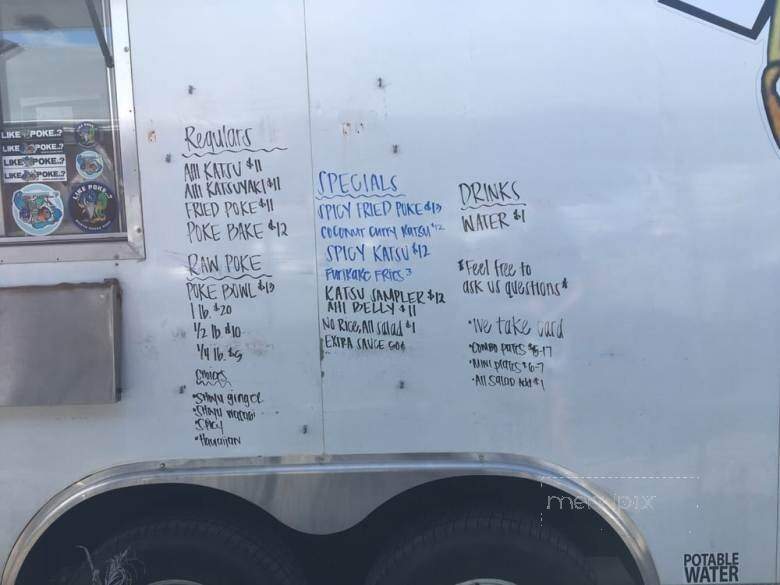 LIKE POKE.?
LIKE POKE.?
LIKE POKE.?
LIKE POKE.?
LIKE POKE.?
Regulars
AHI KATSU $11
AHI KATSUYAKI $11
FRIED POKE $11
POKE BAKE $12
RAW POKE
POKE BOWL $13
1 lb. $20
1/2 lb $10
1/4 lb. $5
Choices
•Shoyu ginger
•Shoyu wasabi
•Spicy
•Hawaiian
SPECIALS
SPICY FRIED POKE $13
Coconut Curry Katsu $12
SPICY KATSU $12
Furikake Fries 3
KATSU SAMPLER $12
AHI BELLY $11
No Rice, All salad $1
EXTRA SAUCE 60¢
DRINKS
WATER $1
*Feel free to
ask us questions*
•We take card
•Combo plates $15-17
•Mini plates $6-7
•All Salad Add $1
menupix
POTABLE
WATER